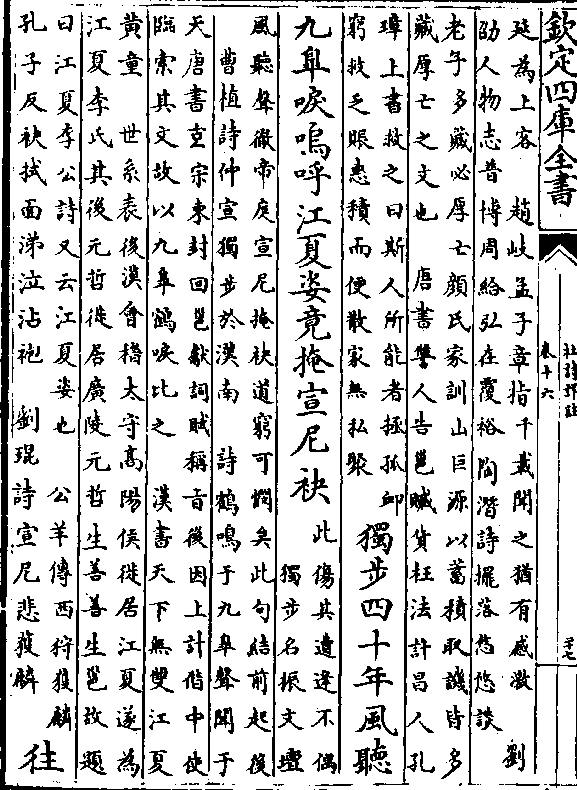 欽定四庫全書
杜詩詳註
卷十六
延為上客　趙岐孟子章指千載聞之猶有感激　劉
劭人物志普博周給弘在覆裕　陶潛詩擺落悠悠談
老子多藏必厚亡顏氏家訓山巨源以蓄積取譏皆多
藏厚亡之文也　唐書讐人告邕贓貨枉法許昌人孔
璋上書救之曰斯人所能者拯孤卹
窮救乏賑惠積而便散家無私聚
獨步四十年風聽
九臯唳嗚呼江夏姿竟掩宣尼袂
此傷其遭逢不偶
獨步名振文壇
風聽聲徹帝庭宣尼掩袂道窮可憫矣此句結前起後
曹植詩仲宣獨步於漢南　詩鶴鳴于九臯聲聞于
天唐書玄宗東封回邕獻詞賦稱旨後因上計偕中使
臨索其文故以九臯鶴唳比之　漢書天下無雙江夏
黃童　世系表後漢會稽太守高陽侯徙居江夏遂為
江夏李氏其後元哲徙居廣陵元哲生善善生邕故題
曰江夏李公詩又云江夏姿也　公羊傳西狩獲麟
孔子反袂拭面涕泣沾袍　劉琨詩宣尼悲獲麟
往